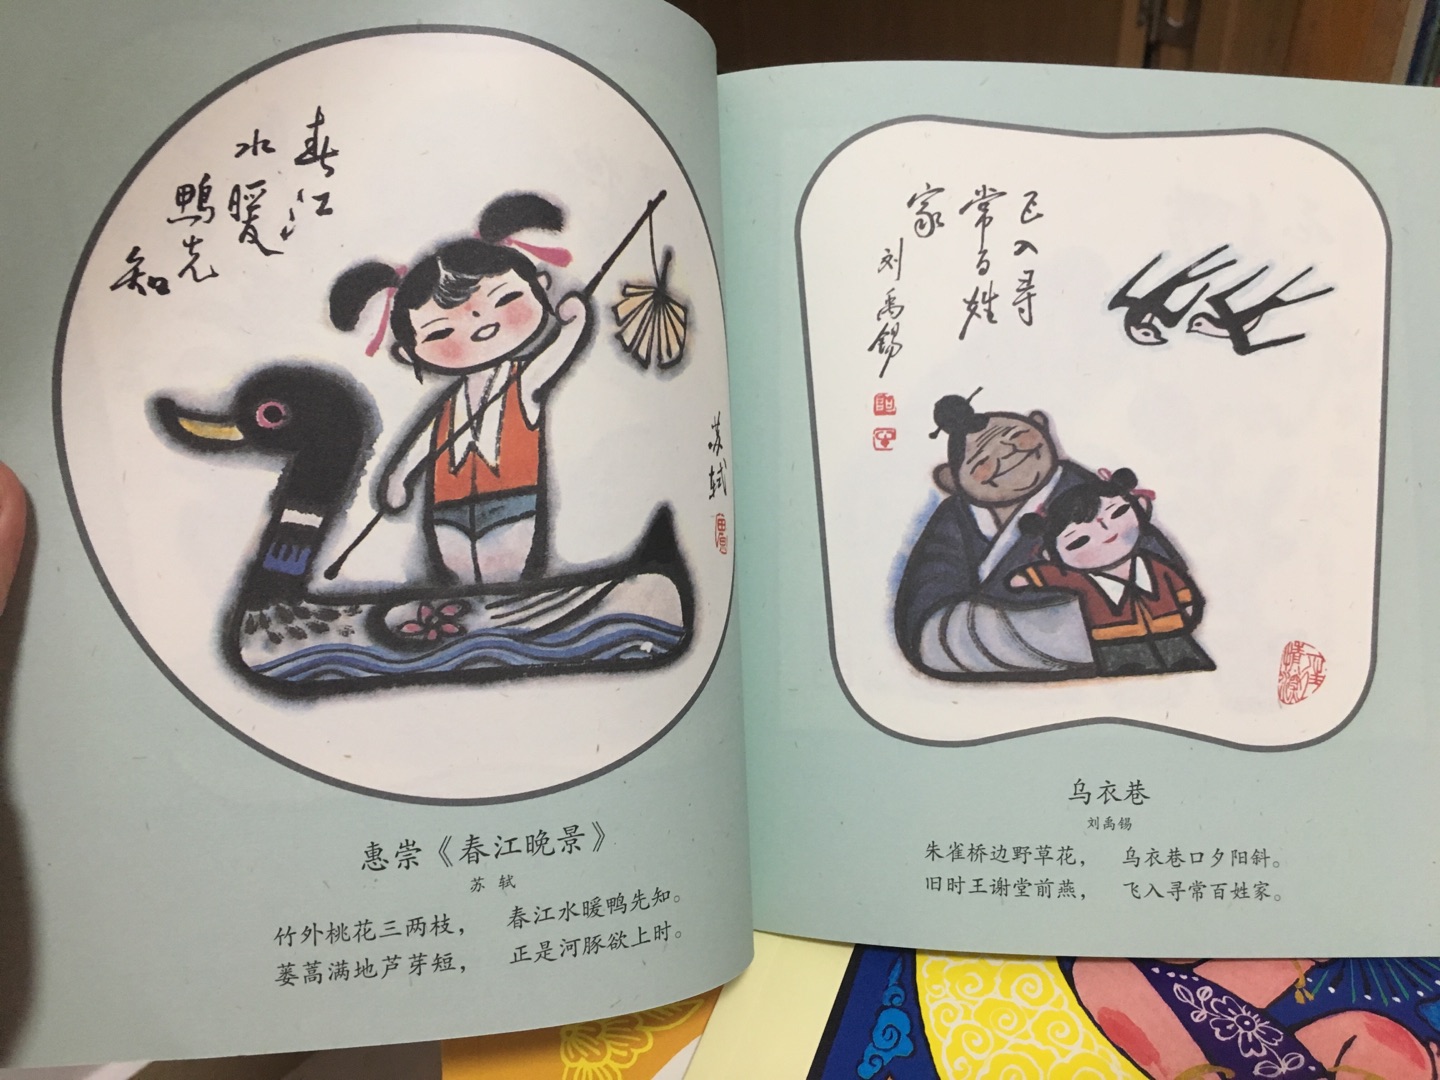 春江
水暖
鸭先
知
苏轼
惠崇《春江晚景》
苏 轼
竹外桃花三两枝， 春江水暖鸭先知。
蒌蒿满地芦芽短， 正是河豚欲上时。
飞入寻
常百姓
家
刘禹锡
乌衣巷
刘禹锡
朱雀桥边野草花， 乌衣巷口夕阳斜。
旧时王谢堂前燕， 飞入寻常百姓家。